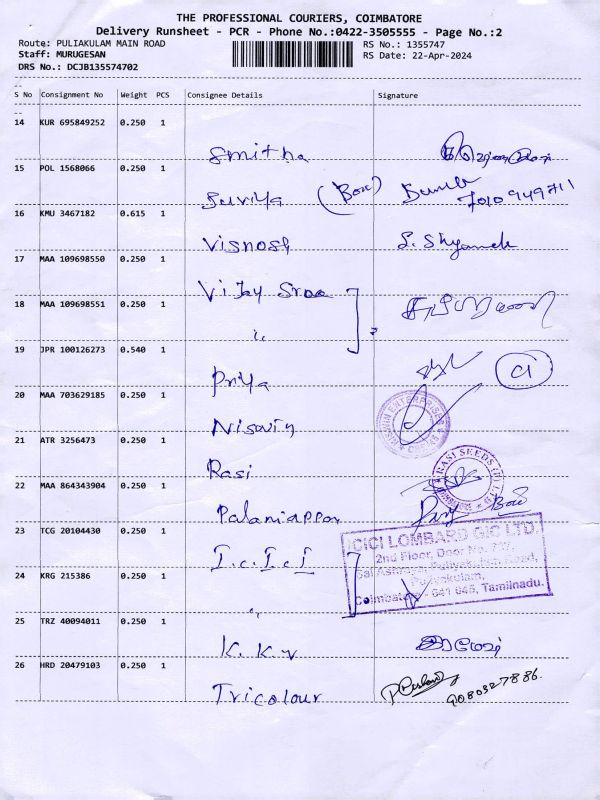 THE PROFESSIONAL COURIERS, COIMBATORE
Delivery Runsheet - PCR - Phone No.:0422-3505555 - Page No.:2
Route: PULIAKULAM MAIN ROAD RS No.: 1355747
Staff: MURUGESAN RS Date: 22-Apr-2024
DRS No.: DCJB135574702
S No Consignment No Weight PCS Consignee Details Signature
14 KUR 695849252 0.250 1
Smitha
15 POL 1568066 0.250 1
Suriya (Bou)
16 KMU 3467182 0.615 1
Visnosh S. Shyamala
17 MAA 109698550 0.250 1
Vijay Sree
18 MAA 109698551 0.250 1
"
19 JPR 100126273 0.540 1
Priya Ci
20 MAA 703629185 0.250 1
Niswin NISWIN ENTERPRISES
21 ATR 3256473 0.250 1
Rasi RASI SEEDS (P) LTD
22 MAA 864343904 0.250 1
Palaniappan
23 TCG 20104430 0.250 1
I.C.I.C.I ICICI LOMBARD GIC LTD.
2nd Floor, Door No.
24 KRG 215386 0.250 1
Puliyakulam,
" Coimbatore - 641 045, Tamilnadu.
25 TRZ 40094011 0.250 1
K.K.V
26 HRD 20479103 0.250 1
Tricolour 9080327886